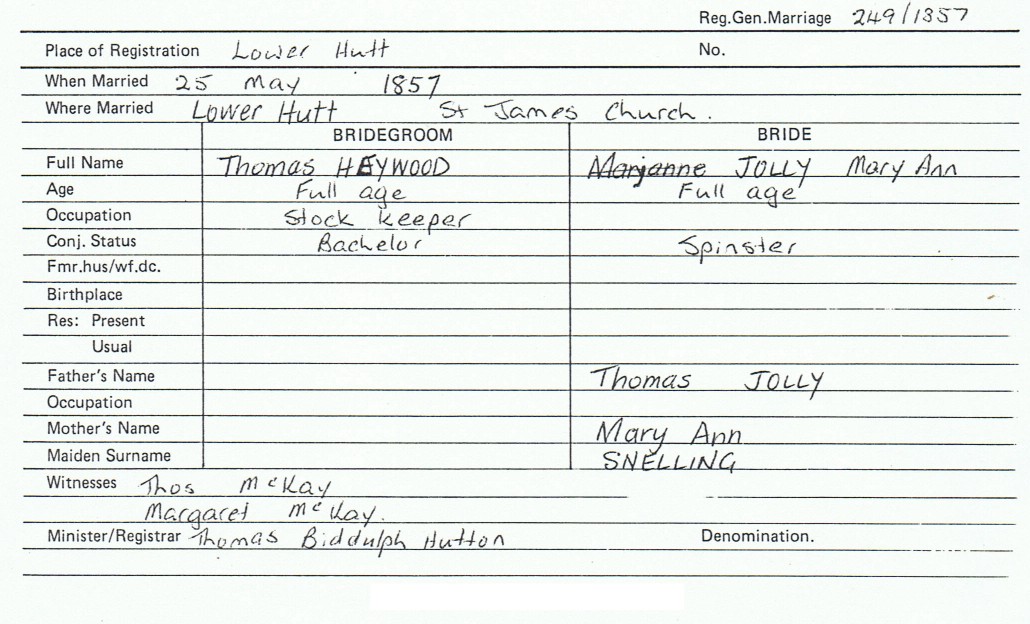 Reg.Gen.Marriage 249/1857
Place of Registration Lower Hutt No.
When Married 25 May 1857
Where Married Lower Hutt St James Church.
BRIDEGROOM BRIDE
Full Name Thomas HEYWOOD Marjanne JOLLY Mary Ann
Age Full age Full age
Occupation Stock keeper
Conj. Status Bachelor Spinster
Fmr.hus/wf.dc.
Birthplace
Res: Present
Usual
Father's Name Thomas JOLLY
Occupation
Mother's Name Mary Ann
Maiden Surname SNELLING
Witnesses Thos McKay
Margaret McKay.
Minister/Registrar Thomas Biddulph Hutton Denomination.